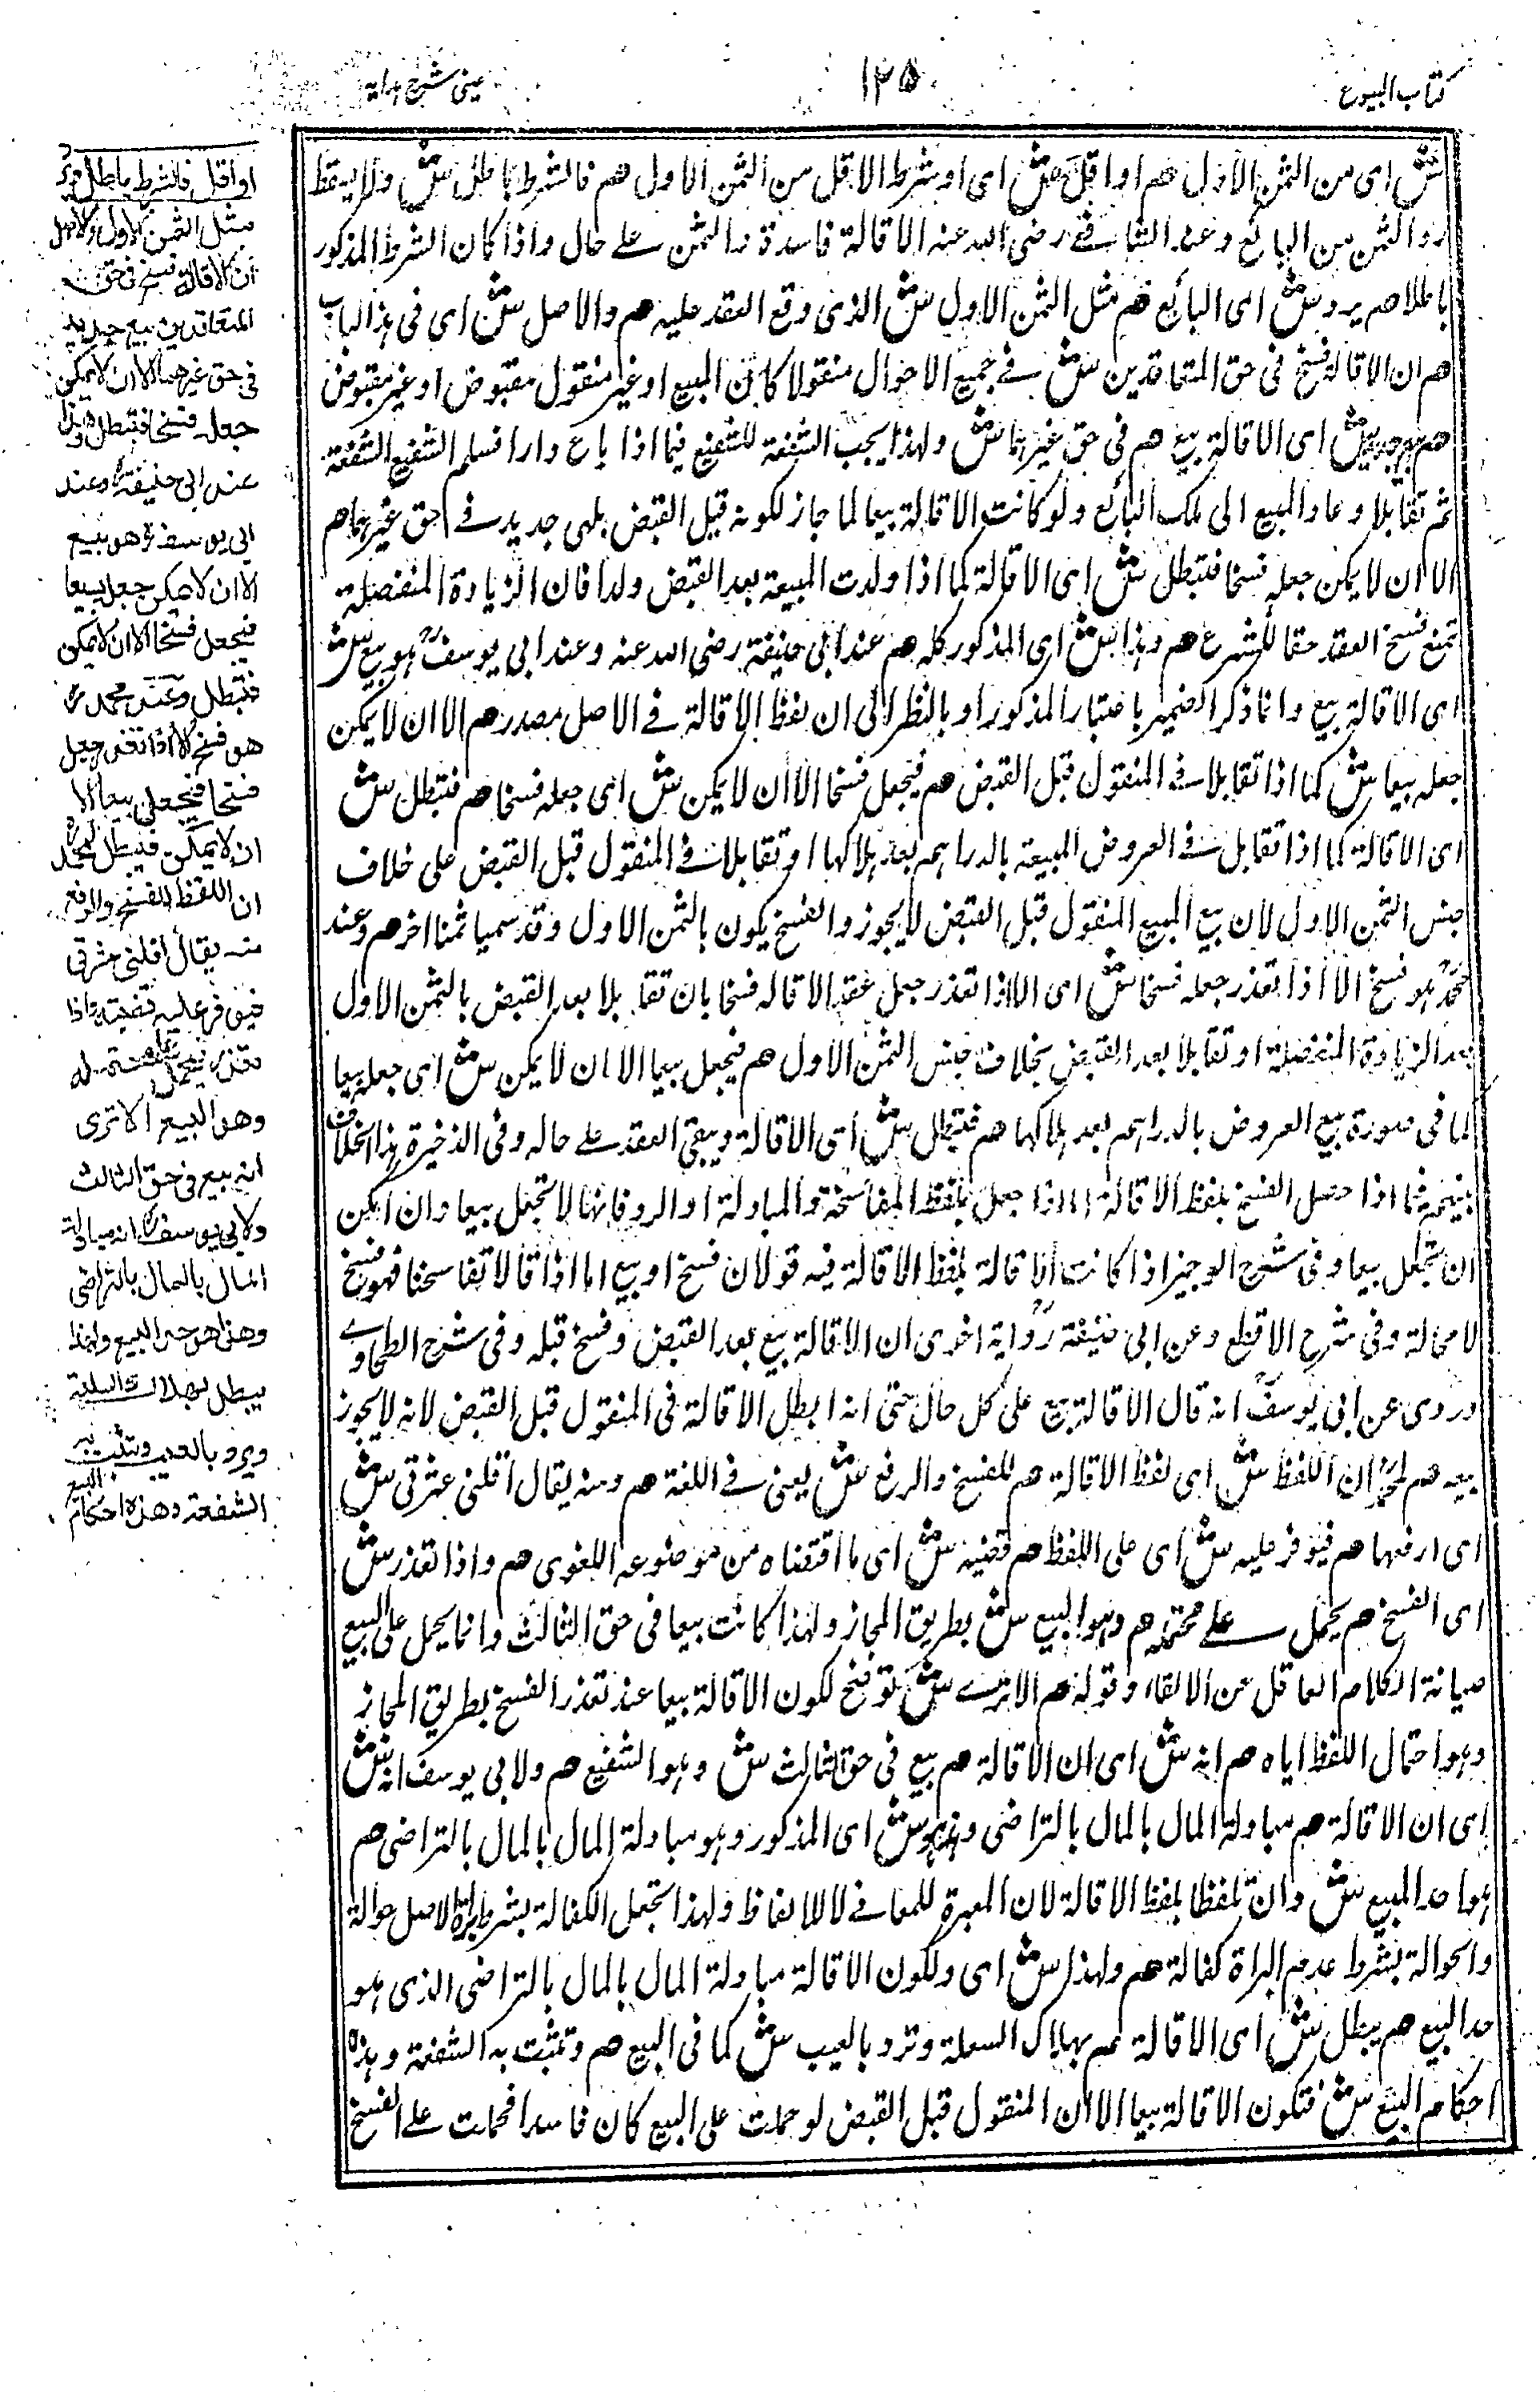 كتاب البيوع
١٢٥
عينى شرح هدايه
ش اى من الثمن الاول هم او اقل ش اى او شرط الاقل من الثمن الاول هم فالشرط باطل ش
رد الثمن من البائع وعند الشافعى رضى الله عنه الاقالة فاسدة والثمن على حال واذا كان الشرط المذكور
باطلا هم يرد ش اى البائع هم مثل الثمن الاول ش الذى وقع العقد عليه هم والاصل ش اى فى هذا الباب
هم ان الاقالة فسخ فى حق المتعاقدين ش فى جميع الاحوال منقولا كان المبيع او غير منقول مقبوض او غير مقبوض
هم بيع جديد ش اى الاقالة بيع هم فى حق غيرهما ش ولهذا يجب الشفعة للشفيع فيما اذا باع دارا فسلم الشفيع الشفعة
ثم تقايلا وعاد المبيع الى ملك البائع ولو كانت الاقالة بيعا لما جاز لكونه قبل القبض بلى جديد فى حق غيرهما هم
الا ان لا يمكن جعله فسخا فتبطل ش اى الاقالة كما اذا ولدت المبيعة بعد القبض ولدا فان الزيادة المنفصلة
تمنع فسخ العقد حقا للشرع هم وهذا ش اى المذكور كله هم عند ابى حنيفة رضى الله عنه وعند ابى يوسف هو بيع ش
اى الاقالة بيع وانما ذكر الضمير باعتبار المذكور او بالنظر الى ان لفظ الاقالة فى الاصل مصدر هم الا ان لا يمكن
جعله بيعا ش كما اذا تقايلا فى المنقول قبل القبض هم فيجعل فسخا الا ان لا يمكن ش اى جعله فسخا هم فتبطل ش
اى الاقالة كما اذا تقايلا فى العروض المبيعة بالدراهم بعد هلاكها او تقايلا فى المنقول قبل القبض على خلاف
جنس الثمن الاول لان بيع المبيع المنقول قبل القبض لا يجوز والفسخ يكون بالثمن الاول وقد سميا ثمنا اخر هم وعند
محمد هو فسخ الا اذا تعذر جعله فسخا ش اى الا اذا تعذر جعل عقد الاقاله فسخا بان تقايلا بعد القبض بالثمن الاول
بعد الزيادة المنفصلة او تقايلا بعد القبض بخلاف جنس الثمن الاول هم فيجعل بيعا الا ان لا يمكن ش اى جعله بيعا
كما فى صورة بيع العروض بالدراهم بعد هلاكها هم فتبطل ش اى الاقالة ويبقى العقد على حاله وفى الذخيرة هذا الخلاف
بينهم فيما اذا حصل الفسخ بلفظ الاقالة اما اذا جعل بلفظ المفاسخة والمباولة او الرد فانها لا تجعل بيعا وان امكن
ان تجعل بيعا وفى شرح الوجيز اذا كانت الاقالة بلفظ الاقالة فيه قولان فسخ او بيع اما اذا قالا تفاسخنا فهو فسخ
لا محالة وفى شرح الاقطع وعن ابى حنيفة رواية اخرى ان الاقالة بيع بعد القبض وفسخ قبله وفى شرح الطحاوى
وروى عن ابى يوسف انه قال الاقالة بيع على كل حال حتى انه ابطل الاقالة فى المنقول قبل القبض لانه لا يجوز
بيعه هم لمحمد ان اللفظ ش اى لفظ الاقالة هم للفسخ والرفع ش يعنى فى اللغة هم ومنه يقال اقلنى عثرتى ش
اى ارفعها هم فيوفر عليه ش اى على اللفظ هم قضيته ش اى ما اقتضاه من موضوعه اللغوى هم واذا تعذر ش
اى الفسخ هم يحمل على محتمله هم وهو البيع ش بطريق المجاز ولهذا كانت بيعا فى حق الثالث وانما يحمل على البيع
صيانة الكلام العاقل عن الالغاء وقوله هم الا ترى ش توضح لكون الاقالة بيعا عند تعذر الفسخ بطريق المجاز
وهو احتمال اللفظ اياه هم انه ش اى ان الاقالة هم بيع فى حق الثالث ش وهو الشفيع هم ولابى يوسف انه ش
اى ان الاقالة هم مبادلة المال بالمال بالتراضى وهذا هو ش اى المذكور وهو مبادلة المال بالمال بالتراضى هم
هو احد المبيع ش وان تلفظا بلفظ الاقالة لان العبرة للمعانى لا للالفاظ ولهذا تجعل الكفالة بشرط براة الاصل حوالة
والحوالة بشرط عدم البراة كفالة هم ولهذا ش اى ولكون الاقالة مبادلة المال بالمال بالتراضى الذى هو
حد البيع هم يبطل ش اى الاقالة هم بهلاك السلعة وترد بالعيب ش كما فى البيع هم وتثبت به الشفعة وهذه
احكام البيع ش فتكون الاقالة بيعا الا ان المنقول قبل القبض لو حملت على البيع كان فاسدا فحملت على الفسخ
او اقل فالشرط باطل ويرد
مثل الثمن الاول والاصل
ان الاقالة فسخ فى حق
المتعاقدين بيع جديد
فى حق غيرهما الا ان لا يمكن
جعله فسخا فتبطل وهذا
عند ابى حنيفة وعند
ابى يوسف هو بيع
الا ان لا يمكن جعله بيعا
فيجعل فسخا الا ان لا يمكن
فتبطل وعند محمد
هو فسخ الا اذا تعذر جعله
فسخا فيجعل بيعا الا
ان لا يمكن فتبطل لمحمد
ان اللفظ للفسخ والرفع
منه يقال اقلنى عثرتى
فيوفر عليه قضيته واذا
تعذر يحمل على محتمله
وهو البيع الا ترى
انه بيع فى حق الثالث
ولابى يوسف انه مبادلة
المال بالمال بالتراضى
وهذا هو حد البيع ولهذا
يبطل بهلاك السلعة
ويرد بالعيب وتثبت به
الشفعة وهذه احكام البيع